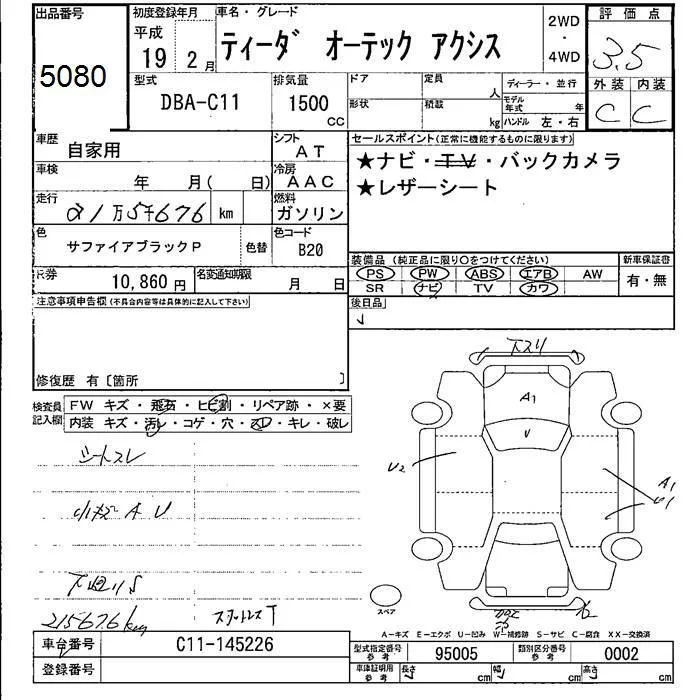 出品番号 5080
初度登録年月 平成 19年 2月
車名・グレード ティーダ オーテック アクシス
2WD・4WD
評価点 3.5
外装 内装
C C
型式 DBA-C11
排気量 1500 cc
ドア 形状
定員 人 積載 kg
ディーラー・並行
モデル年式 年
ハンドル 左・右
車歴 自家用
シフト AT
車検 年 月( 日)
冷房 AAC
走行 21万5千676 km
燃料 ガソリン
色 サファイアブラックP 色替
色コード B20
R券 10,860円
名変通知期限 月 日
セールスポイント(正常に機能するものに限ります)
★ナビ・TV・バックカメラ
★レザーシート
装備品 (純正品に限り○をつけてください)
新車保証書
PS PW ABS エアB AW
SR ナビ TV カワ
有・無
後日品
注意事項申告欄(不具合内容等は具体的に記入して下さい)
修復歴 有〔箇所 〕
検査員記入欄
FW キズ・飛石・ヒビ割・リペア跡・×要
内装 キズ・汚レ・コゲ・穴・スレ・キレ・破レ
シートスレ
小キズ A U
下廻りS
215676km
スタットレスT
下スリ
A1
U
U2
A1
U1
スペア
A-キズ E-エクボ U-凹み W-補修跡 S-サビ C-腐食 XX-交換済
車台番号 C11-145226
登録番号
型式指定番号 参考 95005
類別区分番号 参考 0002
車庫証明用 参考 長さ cm 幅 cm 高さ cm